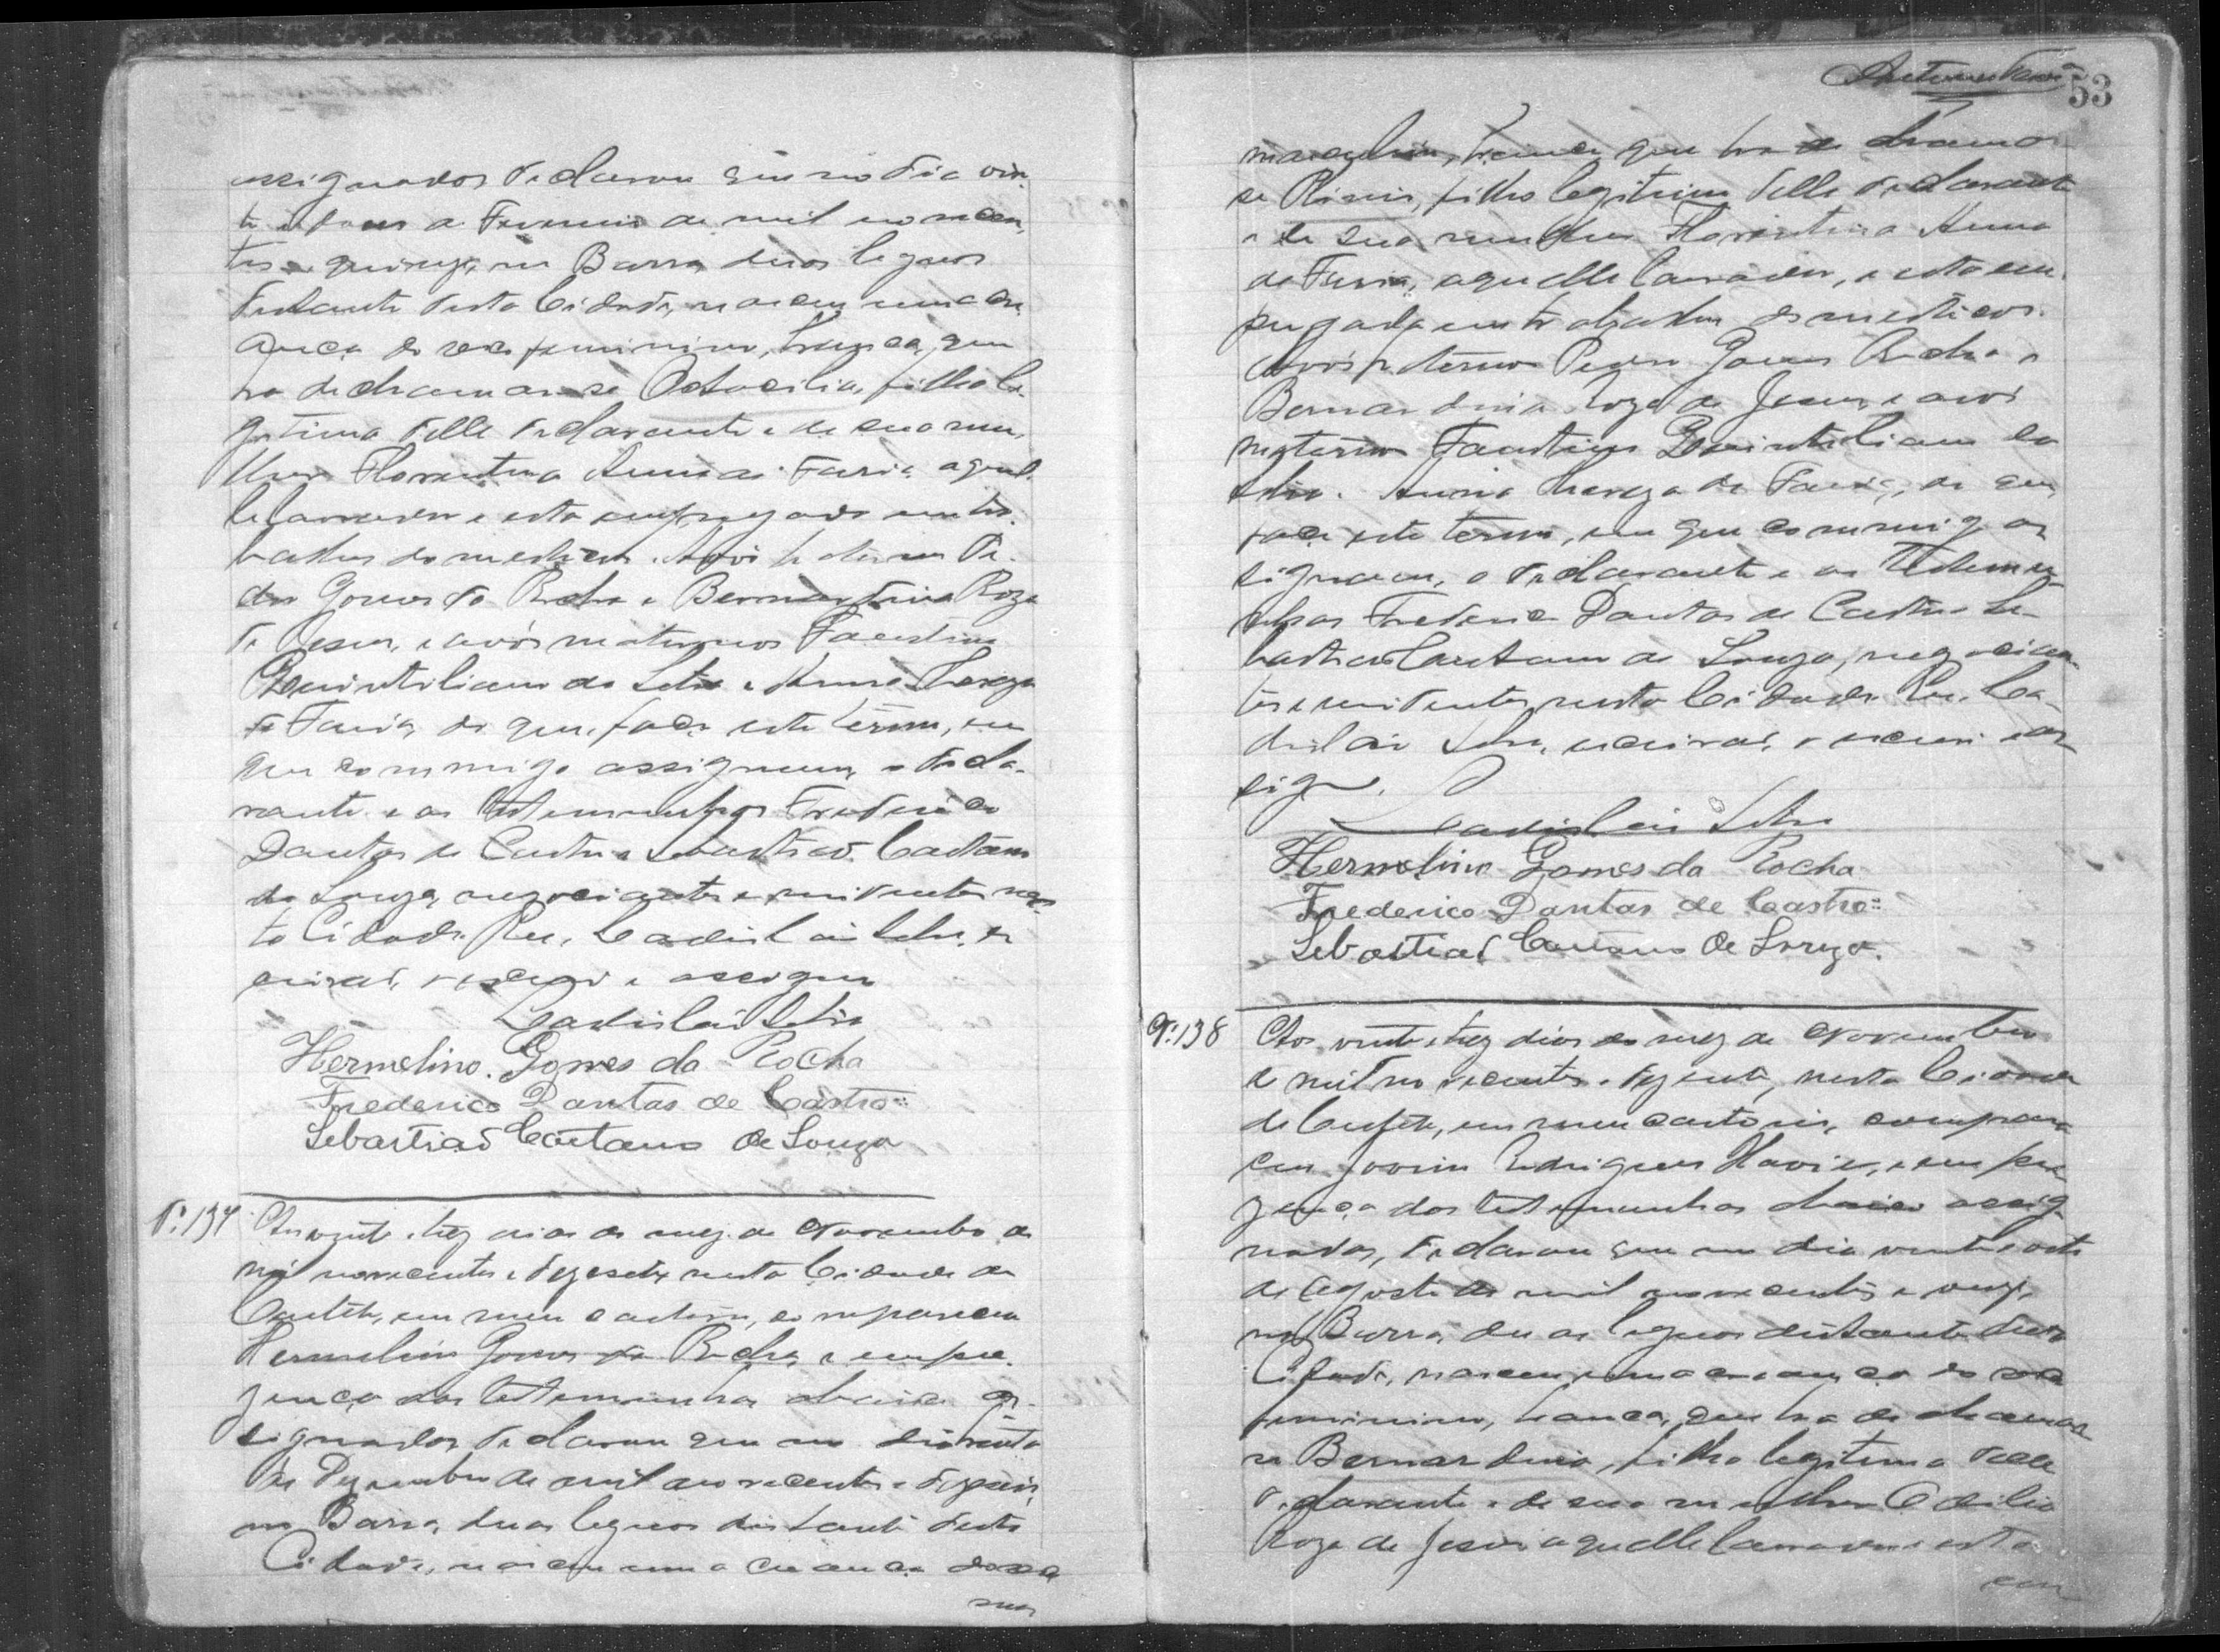 assignados declarou que no dia vin-
te e dous de Fevereiro de mil novecen-
tos e quinze, na Barra duas leguas
distante desta Cidade, nasceu uma cri-
ança do sexo feminino, branca, que
ha de chamar-se Octacilia, filha le-
gitima delle declarante e de sua mu-
lher Florentina Anna de Faria, aquel-
le lavrador e esta empregada em tra-
balhos domesticos. Avós paternos Pe-
dro Gomes da Rocha e Bernardina Roza
de Jesus, e avós maternos Faustino
Quintiliano da Silva e Anna Thereza
de Faria, do que, faço este termo, em
que commigo assignam, o decla-
rante e as testemunhas Frederico
Dantas de Castro e Sebastião Caetano
de Souza, negociantes e residentes nes-
ta Cidade. Eu, Ladislau Silva, es-
crivão, o escrevi e assigno
Ladislau Silva
Hermelino Gomes da Rocha
Frederico Dantas de Castro
Sebastião Caetano de Souza
Nº 137 Aos vinte e trez dias do mez de Novembro de
mil novecentos e dezesete, nesta Cidade de
Caeteté, em meu cartorio, compareceu
Hermelino Gomes da Rocha, e em pre-
zença das testemunhas abaixo as-
signadas declarou que no dia vinte
de Dezembro de mil novecentos e dezeseis,
na Barra, duas leguas distante desta
Cidade, nasceu uma creança do sexo
mas
53
masculino, branca, que ha de chamar
se , filho legitimo delle declarante
e de sua mulher Florentina Anna
de Faria, aquelle lavrador, e esta em-
pregada em trabalhos domesticos.
Avós paternos Pedro Gomes Rocha e
Bernardina Roza de Jesus, e avós
maternos Faustino Quintiliano da
Silva e Anna Thereza de Faria, do que,
faço este termo, em que commigo as
signam, o declarante e as testemu-
nhas Frederico Dantas de Castro e Se-
bastião Caetano de Souza, negocian-
tes e residentes nesta Cidade. Eu, La-
dislau Silva, escrivão, o escrevi e as-
signo.
Ladislau Silva
Hermelino Gomes da Rocha
Frederico Dantas de Castro
Sebastião Caetano de Souza.
Nº 138 Aos vinte e trez dias do mez de Novembro
de mil novecentos e dezesete, nesta Cidade
de Caeteté, em meu cartorio, compare-
ceu Rodrigues , e em pre-
zença das testemunhas abaixo assig-
nadas, declarou que no dia vinte e oito
de Agosto de mil novecentos e onze,
na Barra, duas leguas distante desta
Cidade, nasceu uma creança do sexo
feminino, branca, que ha de chamar
se Bernardina, filha legitima delle
declarante e de sua mulher Cecilia
Roza de Jesus aquelle lavrador e esta
em